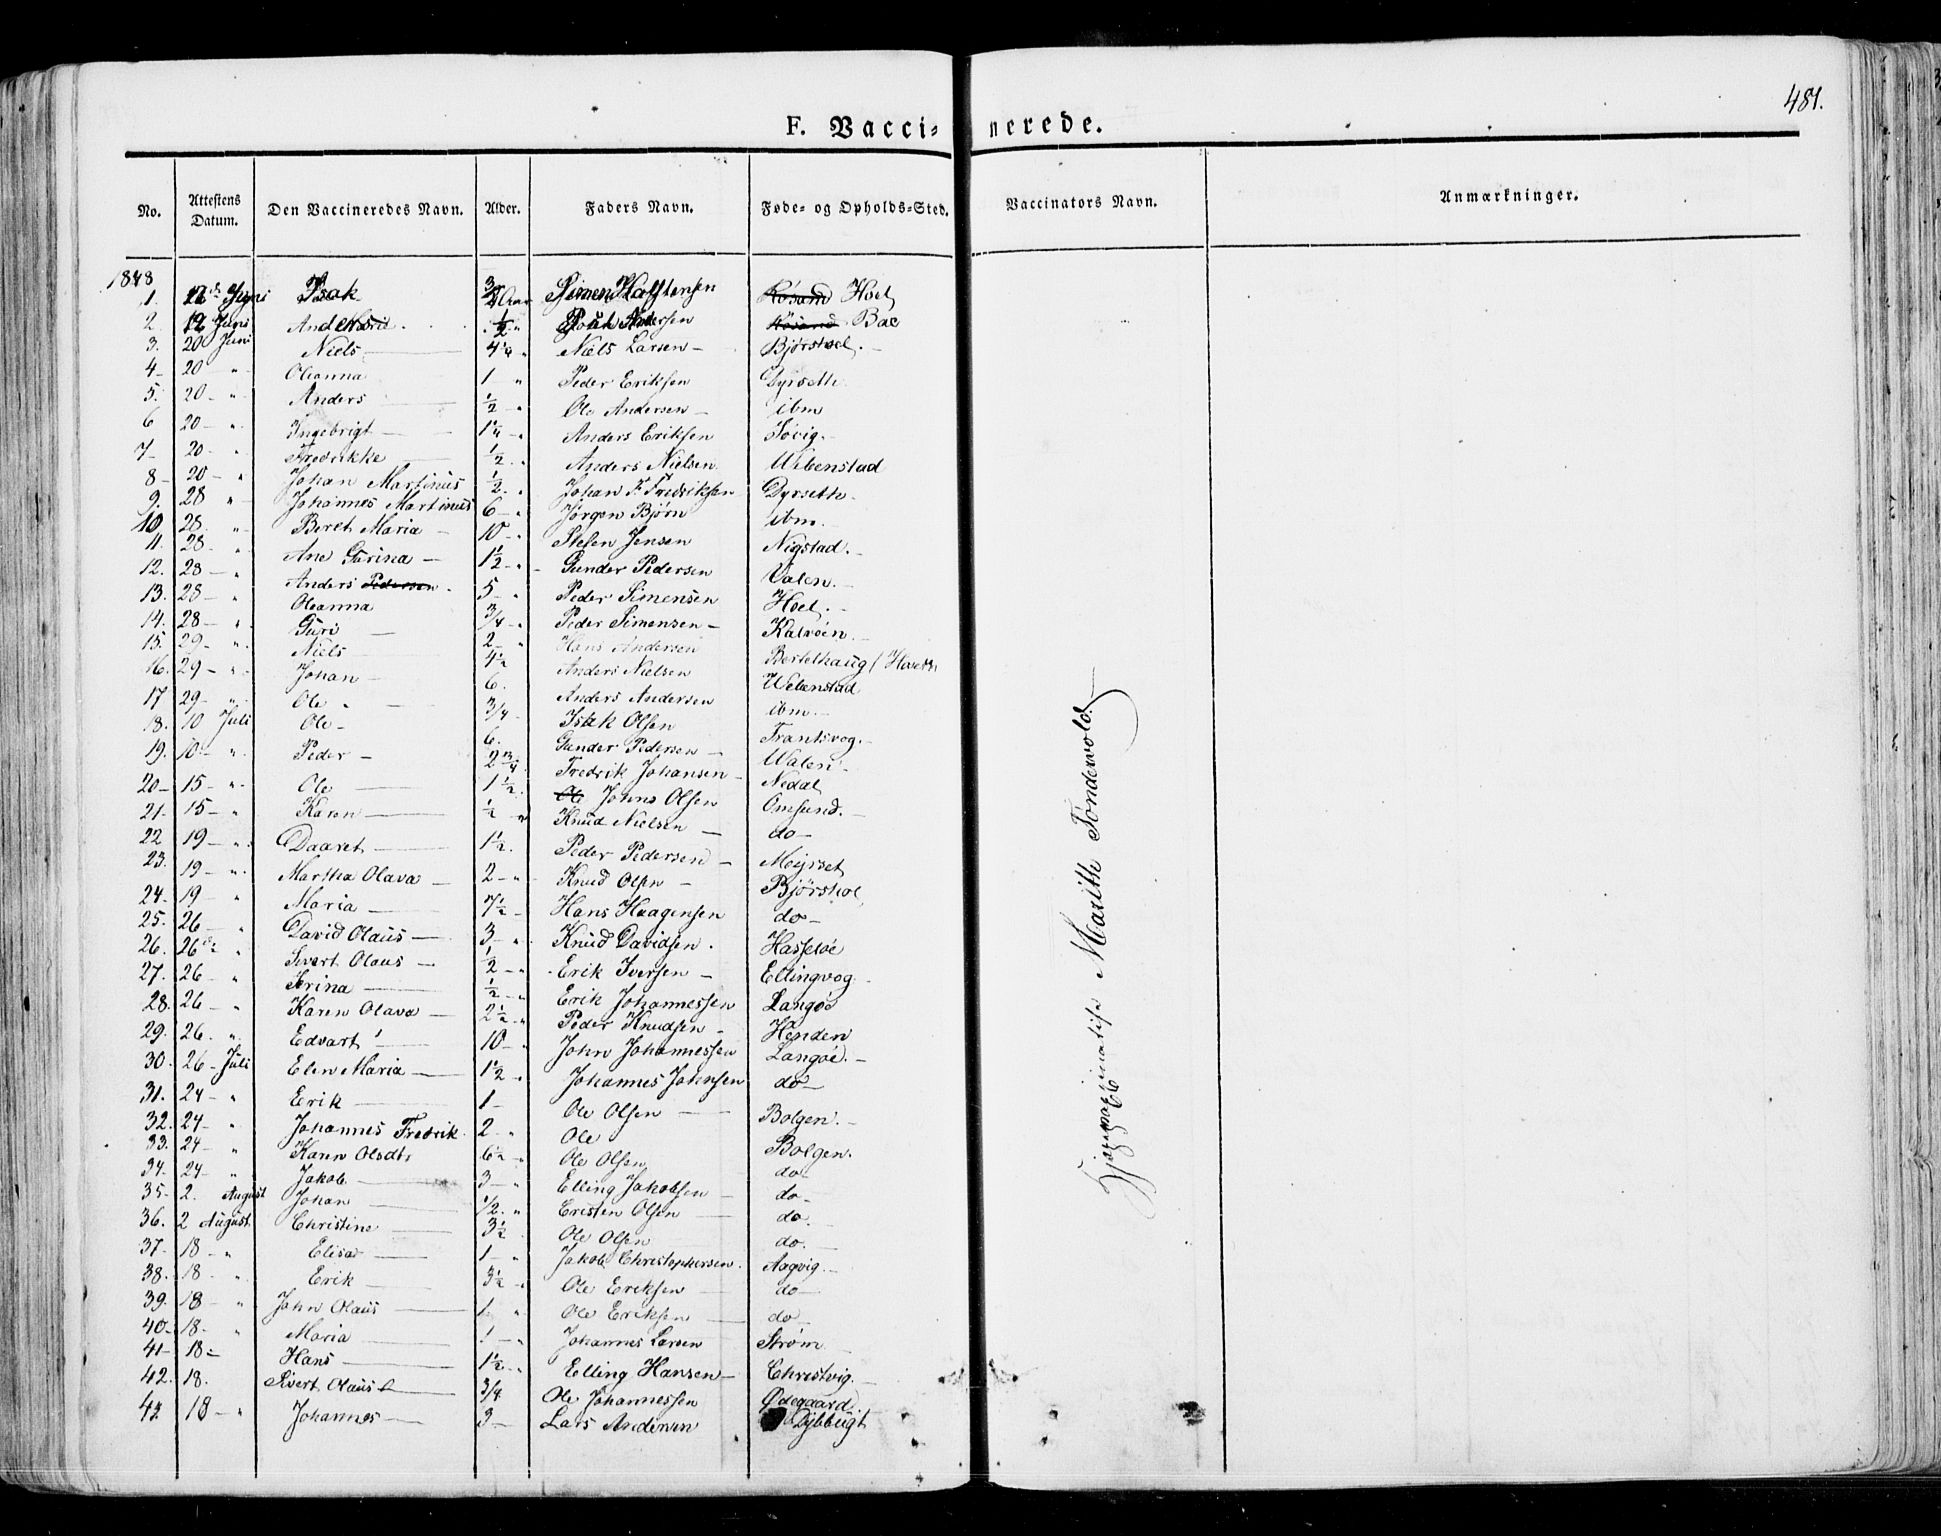 481.
F. Vaccinerede.
No. Attestens Datum. Den Vaccineredes Navn. Alder. Faders Navn. Føde- og Opholds-Sted. Vaccinators Navn. Anmærkninger.
1848
1. 12 Juni Isak Simen Halstensen Hoel
2. 12 Juni ½ " Andersen Bae
3. 20 Juni Niels 4¼ " Niels Larsen Bjørstoel.
4 20 " Oleanna 1 " Peder Eriksen Dyrseth
5. 20 " Anders ½ " Ole Andersen ibm
6 20 " Ingebrigt 1¼ " Anders Eriksen Søvig.
7 20 " Fredrikke ½ " Anders Nielsen Webenstad
8 20 " Johan Martinus ½ " Johan F. Fredriksen Dyrseth
9. 28 " Johannes Martinus 6 " Jørgen Bjørn ibm
10 28 " Beret Maria 10 " Stefen Jensen Nigstad.
11. 28 " Ane Gurina 1½ " Gunder Pedersen Valen.
12. 28 " Anders Pedersen 5 " Peder Simensen Hoel.
13. 28 " Oleanna ¾ " Peder Simensen Kalvøen
14. 28 " Guri 2 " Hans Andersen Bestelhaug
15. 29 " Niels 4½ Anders Nielsen Webenstad
16. 29 " Johan 6. Anders Andersen ibm.
17 29 " Ole ¾ Isak Olsen Frantsvog.
18. 10 Juli Ole 6. Gunder Pedersen Walen
19. 10 " Peder 2¾ Fredrik Johansen Nedal
20 15 " Ole 1½ Ole Johns Olsen Omsund.
21. 15 " Karen ½ " Knud Nielsen do
22 19 " Daaret 1½. Peder Pedersen Meyrset
23. 19 " Martha Olava 2 " Knud Olsen Bjørstol
24. 19 " Maria 7½ Hans Haagensen do
25. 26 " David Olaus 3 " Knud Davidsen. Hasseløe
26. 26 " Sivert Olaus ½ " Erik Iversen Ellingvog
27. 26 " Serina ½ " Erik Johannessen Langøe
28. 26 " Karen Olava 2½ " Peder Knudsen Henden
29. 26. " Edvart 10 " John Johannessen Langøe.
30. 26 Juli Elen Maria 1½ " Johannes Johnsen do
31. 24 " Erik 1 Ole Olsen Bolgen.
32. 24 " Johannes Fredrik 2 " Ole Bolgen.
33. 24 " Karen Olsdt. 6½ " Ole Olsen do
34. 24 " Jakob 3 " Elling Jakobsen do
35 2. August Johan ½. " Eristen Olsen do
36. 2 August. Christine 3½ Ole Olsen do.
37. 18 " Elisa 1 " Jakob Christophersen. Aagvig.
38. 18 " Erik 3½ " Ole Eriksen do
39. 18 " John Olaus 1 " Ole Eriksen do
40 18. " Maria 1 " Johannes Larsen Strøm
41 18 Hans 1½ " Elling Hansen Christvig.
42. 18. Sivert Olaus ¾ Ole Johannessen Ødegaard.
43 18 " Johannes 3 Lars Andersen Dybbugt
Hjelpevaccinatise Marithe Tøndervold.